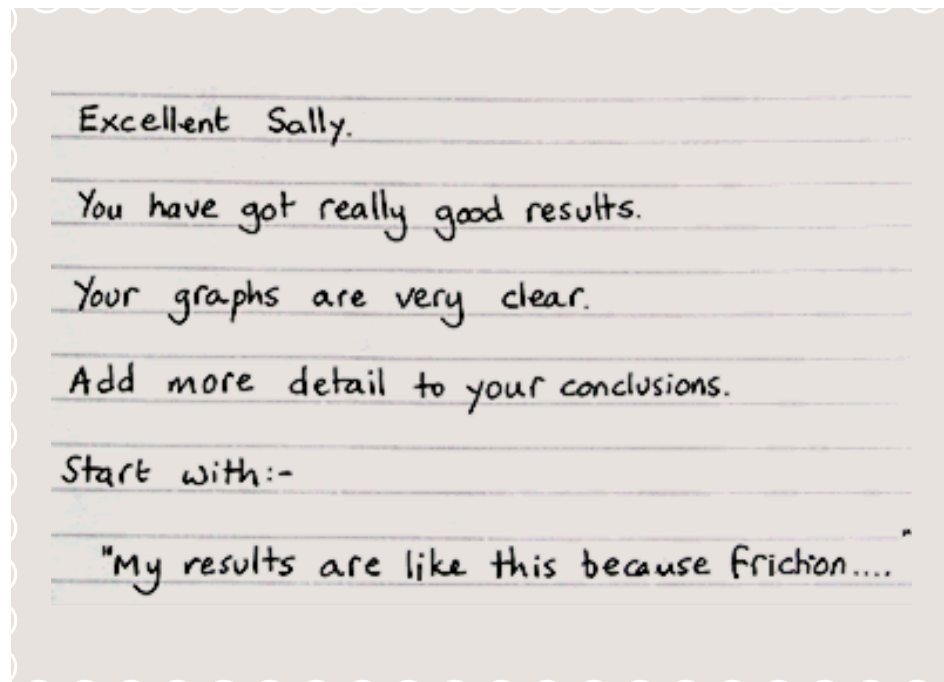 Excellent Sally.
You have got really good results.
Your graphs are very clear.
Add more detail to your conclusions.
Start with:-
"My results are like this because friction...."